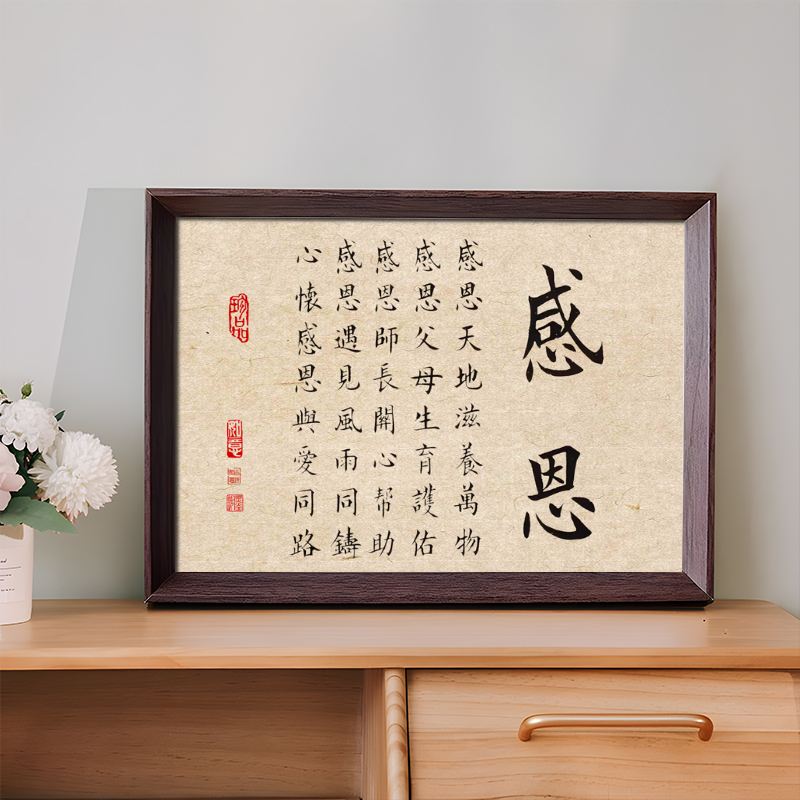 感恩
感恩天地滋養萬物
感恩父母生育護佑
感恩師長開心帮助
感恩遇見風雨同鑄
心懷感恩與愛同路
如意